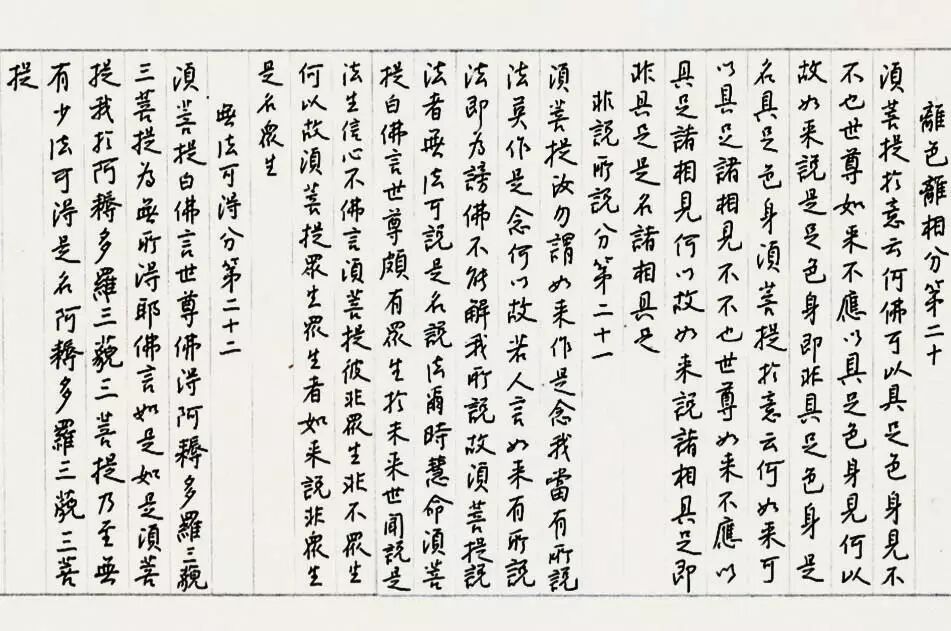 離色離相分第二十
須菩提於意云何佛可以具足色身見不
不也世尊如来不應以具足色身見何以
故如来說是足色身即非具足色身是
名具足色身須菩提於意云何如来可
以具足諸相見不不也世尊如来不應以
具足諸相見何以故如来說諸相具足即
非具足是名諸相具足
非說所說分第二十一
須菩提汝勿謂如来作是念我當有所說
法莫作是念何以故若人言如来有所說
法即為謗佛不能解我所說故須菩提說
法者無法可說是名說法爾時慧命須菩
提白佛言世尊頗有眾生於未来世聞說是
法生信心不佛言須菩提彼非眾生非不眾生
何以故須菩提眾生眾生者如来說非眾生
是名眾生
無法可得分第二十二
須菩提白佛言世尊佛得阿耨多羅三藐
三菩提為無所得耶佛言如是如是須菩
提我於阿耨多羅三藐三菩提乃至無
有少法可得是名阿耨多羅三藐三菩
提